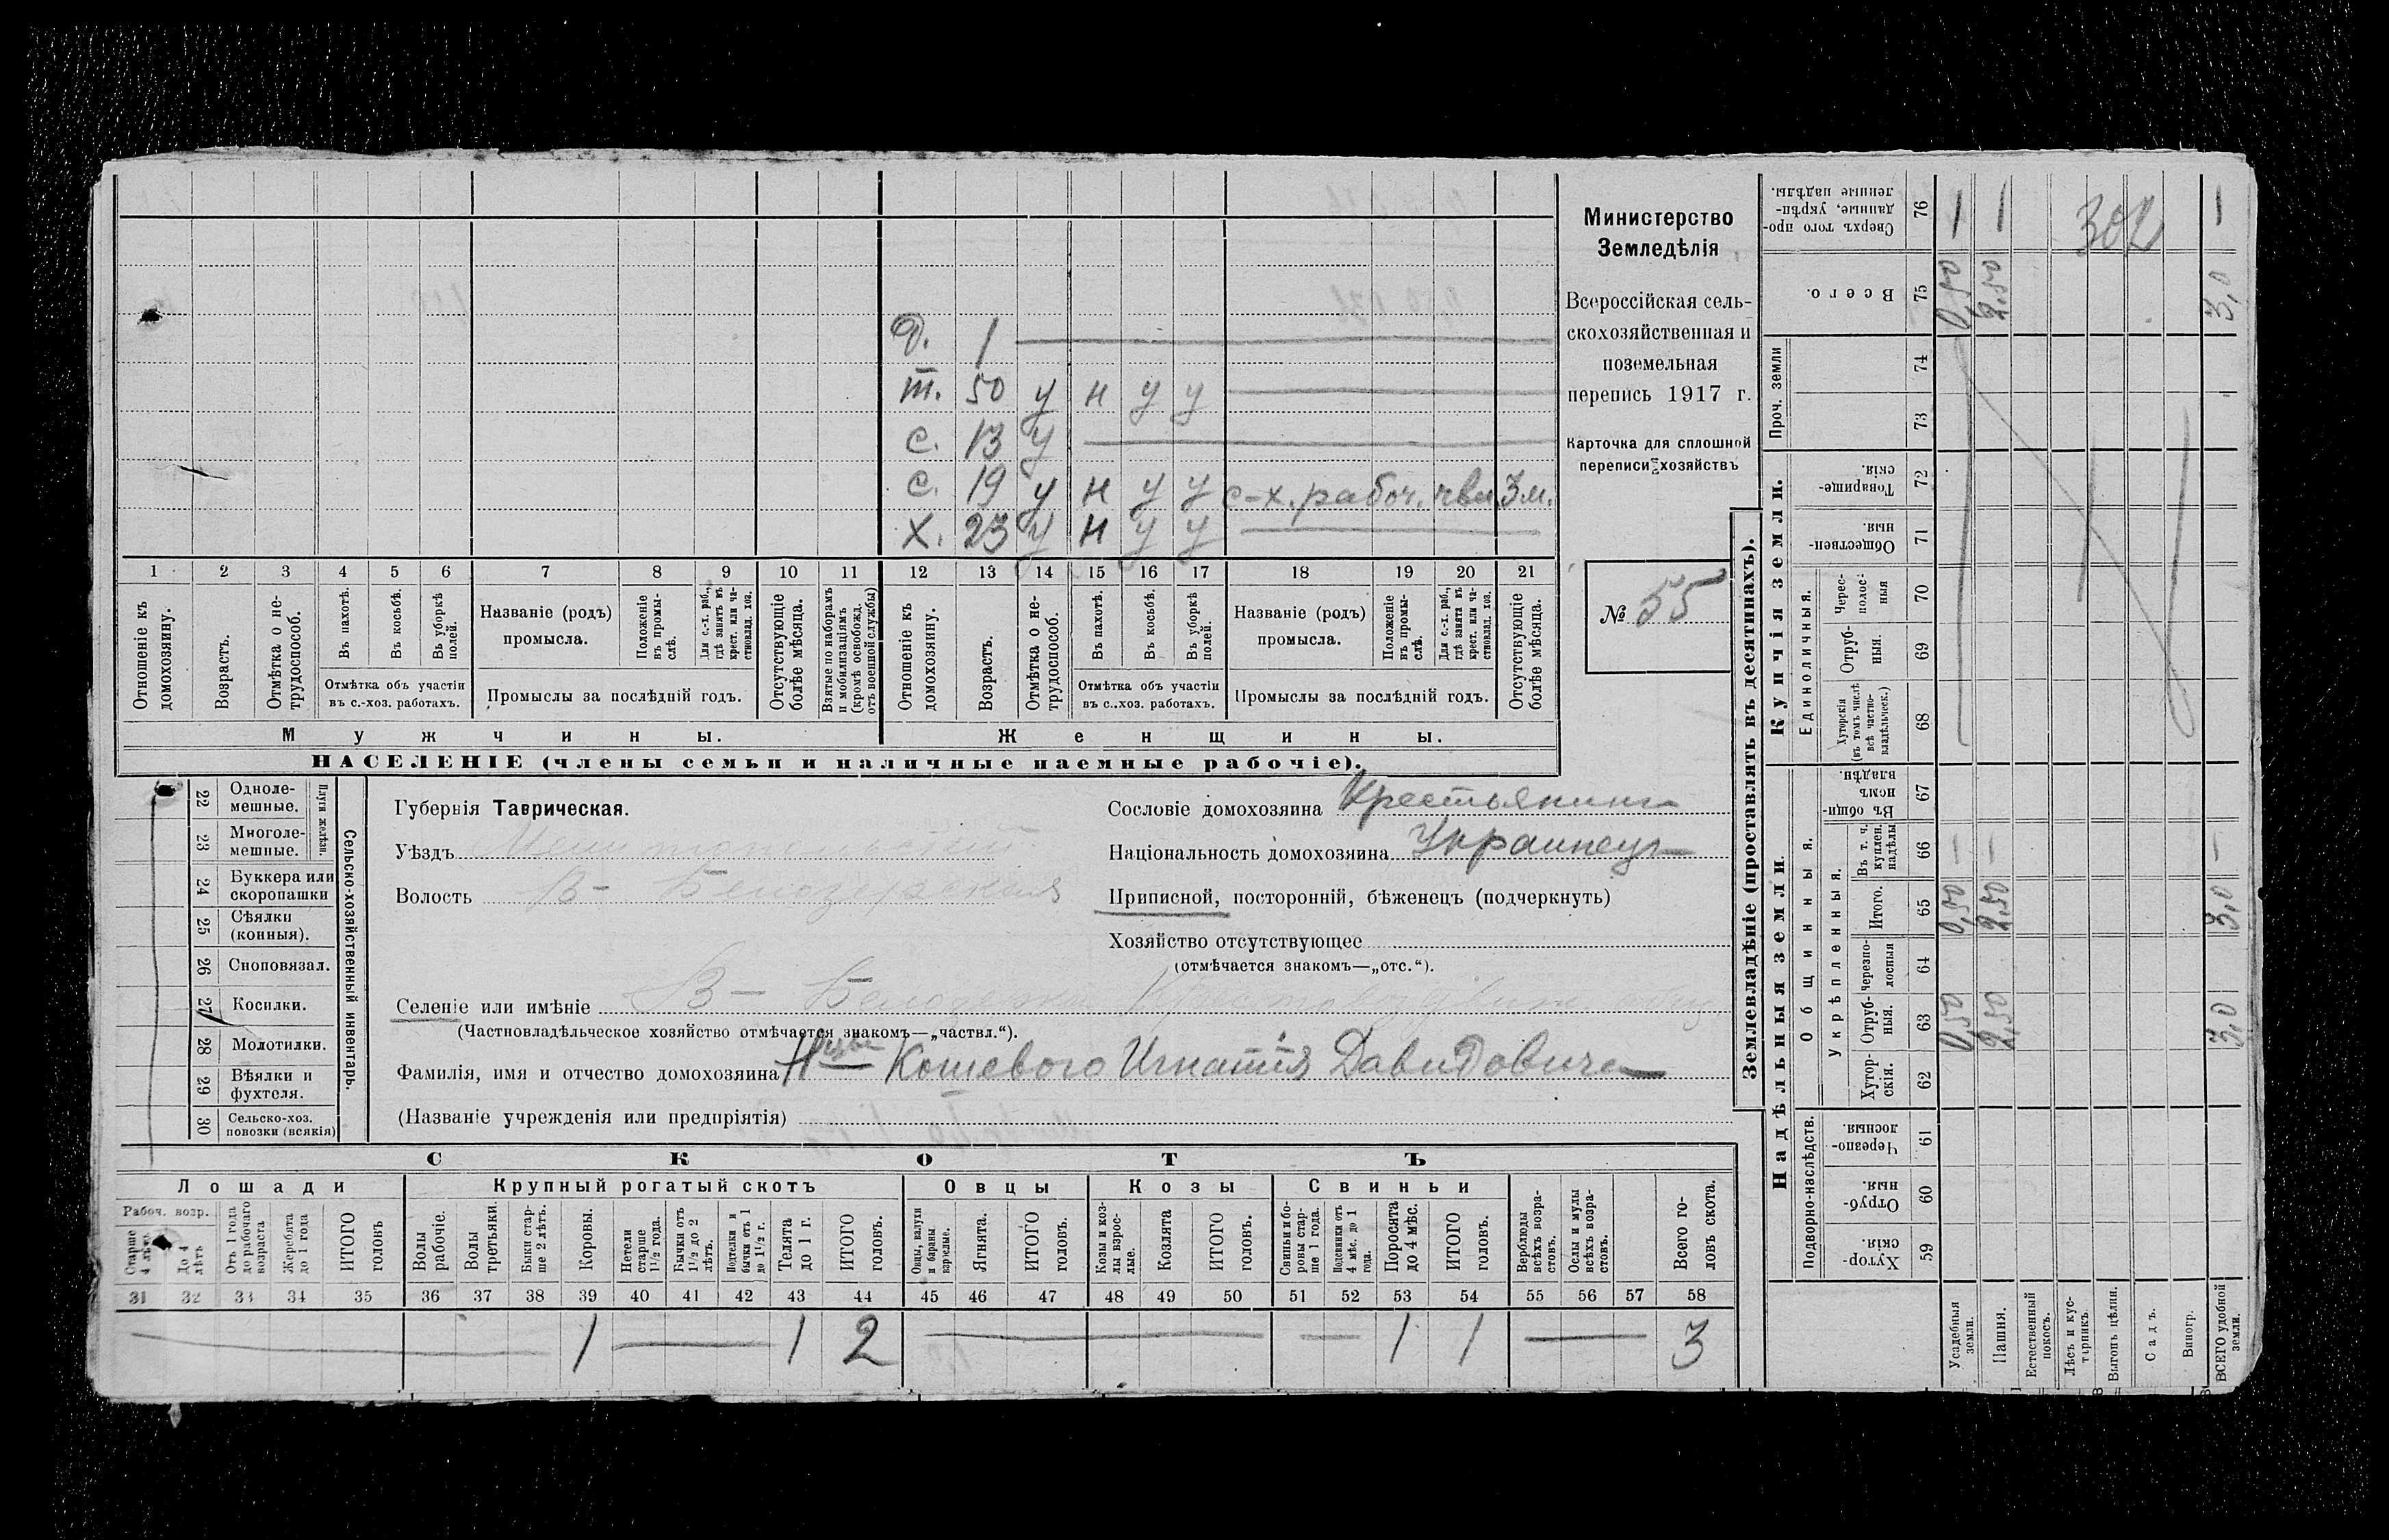 Министерство
Земледѣлія
Всероссійская сель-
скохозяйственная и
поземельная
перепись 1917 г.
Карточка для сплошной
переписи хозяйствъ
№ 55
д. 1
т. 50 у н у у
с. 13 у
с. 19 у н у у с-х. рабоч. 3 м.
х. 23 у н у у
1 2 3 4 5 6 7 8 9 10 11 12 13 14 15 16 17 18 19 20 21
Отношеніе къ домохозяину.
Возрастъ.
Отмѣтка о не-трудоспособ.
Въ пахотѣ.
Въ косьбѣ.
Въ уборкѣ полей.
Отмѣтка объ участіи въ с.-хоз. работахъ.
Названіе (родъ) промысла.
Положеніе въ промы-слѣ.
Для с.-х. раб., гдѣ занятъ въ крест. или ча-стновлад. хоз.
Промыслы за послѣдній годъ.
Отсутствующіе болѣе мѣсяца.
Взятые по наборамъ и мобилизаціямъ (кромѣ освобожд. отъ военной службы)
Отношеніе къ домохозяину.
Возрастъ.
Отмѣтка о не-трудоспособ.
Въ пахотѣ.
Въ косьбѣ.
Въ уборкѣ полей.
Отмѣтка объ участіи въ с..хоз. работахъ.
Названіе (родъ) промысла.
Положеніе въ промы-слѣ.
Для с.-х. раб., гдѣ занята въ крест. или ча-стновлад. хоз.
Промыслы за послѣдній годъ.
Отсутствующіе болѣе мѣсяца.
Мужчины. Женщины.
НАСЕЛЕНІЕ (члены семьи и наличные наемные рабочіе).
Сельско-хозяйственный инвентарь.
Плуги желѣзн.
22 Одноле-мешные.
23 Многоле-мешные.
24 Буккера или скоропашки
25 Сѣялки (конныя).
26 Сноповязал.
27 Косилки.
28 Молотилки.
29 Вѣялки и фухтеля.
30 Сельско-хоз. повозки (всякія)
Губернія Таврическая.
Уѣздъ
Волость В- Белозерская
Селеніе или имѣніе В- Белозерка
(Частновладѣльческое хозяйство отмѣчается знакомъ—„частвл.“).
Фамилія, имя и отчество домохозяина Кошевого Игнатія Давидовича
(Названіе учрежденія или предпріятія)
Сословіе домохозяина Крестьянинъ
Національность домохозяина Украинецъ
Приписной, посторонній, бѣженецъ (подчеркнуть)
Хозяйство отсутствующее
(отмѣчается знакомъ—„отс.“).
СКОТЪ
Лошади Крупный рогатый скотъ Овцы Козы Свиньи
Рабоч. возр.
Старше 4 лѣтъ
До 4 лѣтъ
Отъ 1 года до рабочаго возраста
Жеребята до 1 года
ИТОГО головъ
Волы рабочіе.
Волы третьяки.
Быки стар-ше 2 лѣтъ.
Коровы.
Нетели старше 1½ года.
Бычки отъ 1½ до 2 лѣтъ.
Подтелки и бычки отъ 1 до 1½ г.
Телята до 1 г.
ИТОГО головъ.
Овцы, валухи и бараны взрослые.
Ягнята.
ИТОГО головъ.
Козы и коз-лы взрос-лые.
Козлята
ИТОГО головъ.
Свиньи и бо-ровы стар-ше 1 года.
Подсвинки отъ 4 мѣс. до 1 года.
Поросята до 4 мѣс.
ИТОГО головъ.
Верблюды всѣхъ возра-стовъ.
Ослы и мулы всѣхъ возра-стовъ.
Всего го-ловъ скота.
31 32 33 34 35 36 37 38 39 40 41 42 43 44 45 46 47 48 49 50 51 52 53 54 55 56 57 58
1 1 2 1 1 3
Землевладѣніе (проставлять въ десятинахъ).
Надѣльныя земли. Купчія земли.
Подворно-наслѣдств.
Общинныя.
Укрѣпленныя.
Единоличныя.
Проч. земли
59 Хутор-скія.
60 Отруб-ныя.
61 Черезпо-лосныя.
62 Хутор-скія.
63 Отруб-ныя.
64 Черезпо-лосныя
65 Итого.
66 Въ т. ч. куплен. надѣлы
67 Въ общин-номъ владѣн.
68 Хуторскія (въ томъ числѣ всѣ частно-владѣльческ.)
69 Отруб-ныя.
70 Черес-полос-ныя
71 Обществен-ныя.
72 Товарище-скія.
73
74
75 Всего.
76 Сверхъ того про-данные, укрѣп-ленные надѣлы.
Усадебныя земли. 0,50 0,50 — 0,50 —
Пашня. 2,50 2,50 — 2,50 —
Естественный покосъ.
Лѣсъ и кус-тарникъ.
Выгонъ цѣлин.
Садъ.
Виногр.
ВСЕГО удобной земли. 3,0 3,0 — 3,0 —
302